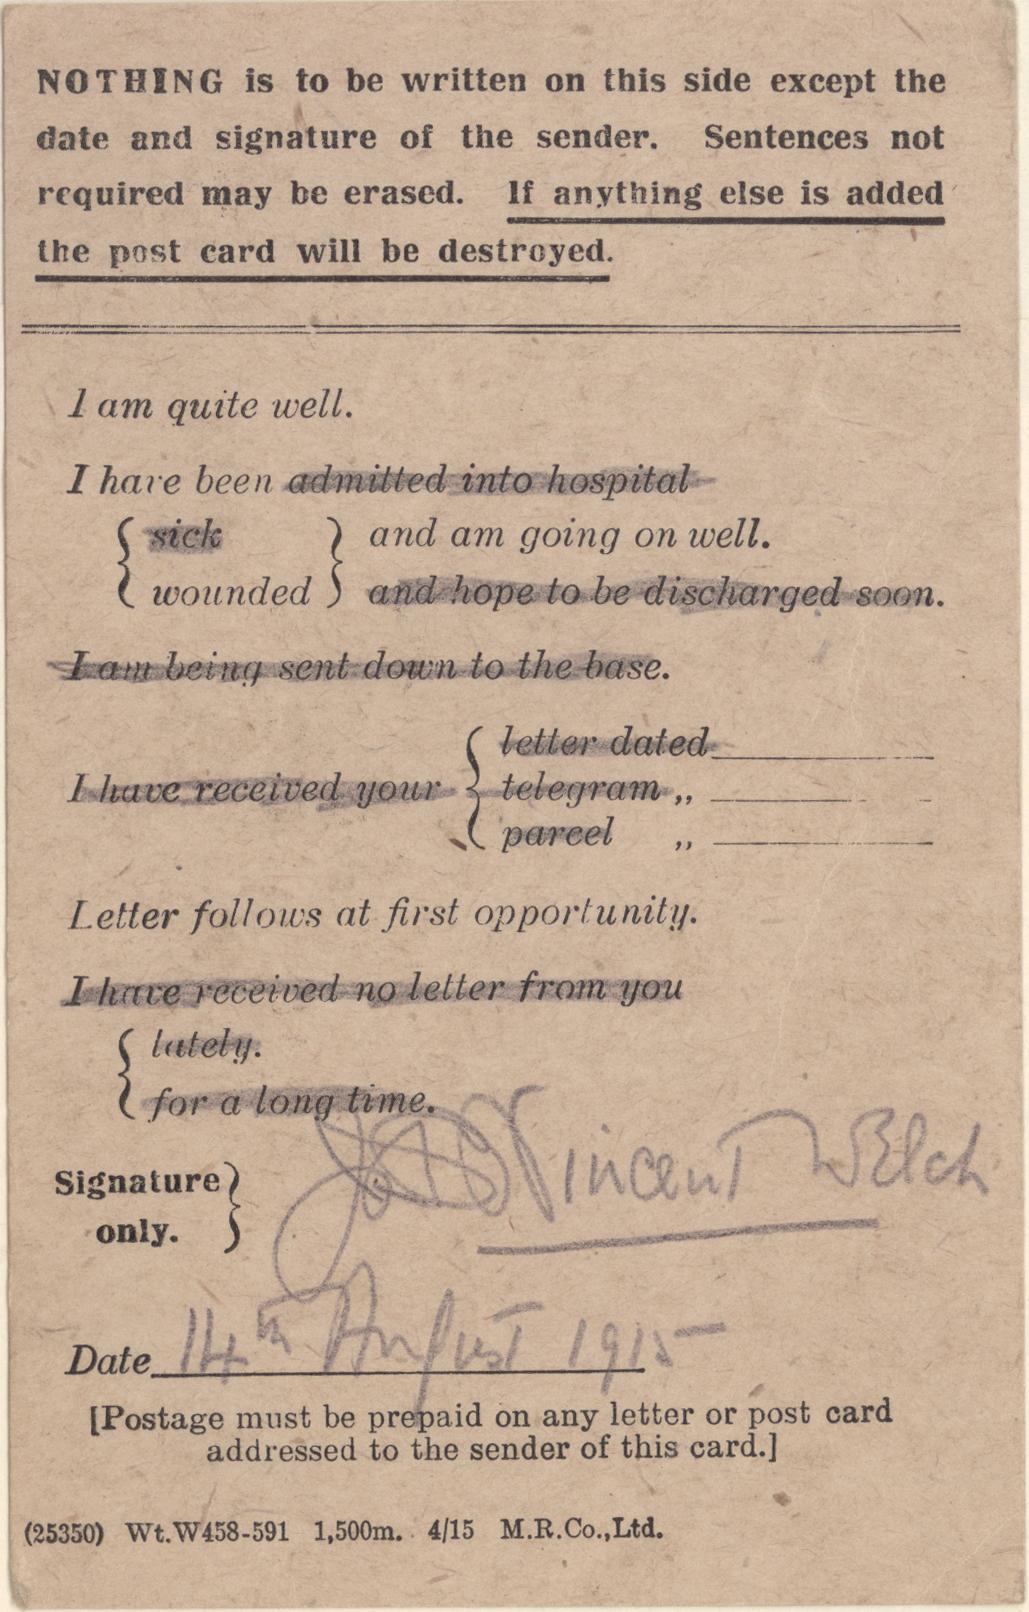 NOTHING is to be written on this side except the
date and signature of the sender. Sentences not
required may be erased. If anything else is added
the post card will be destroyed.
I am quite well.
I have been admitted into hospital
{ sick } and am going on well.
{ wounded } and hope to be discharged soon.
I am being sent down to the base.
I have received your { letter dated
telegram ,,
parcel ,,
Letter follows at first opportunity.
I have received no letter from you
{ lately.
for a long time.
Signature only. } Vincent Welch
Date 14th August 1915
[Postage must be prepaid on any letter or post card
addressed to the sender of this card.]
(25350) Wt.W458-591 1,500m. 4/15 M.R.Co.,Ltd.